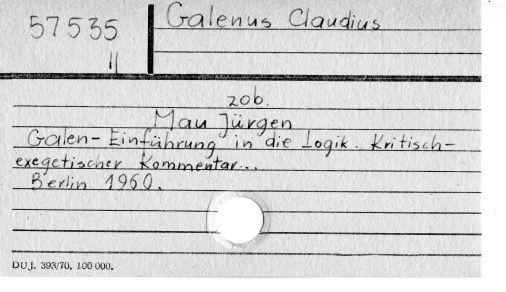 57535
II
Galenus Claudius
zob.
Mau Jürgen
Galen-Einführung in die Logik. Kritisch-
exegetischer Kommentar...
Berlin 1960.
DUJ. 393/70, 100 000.